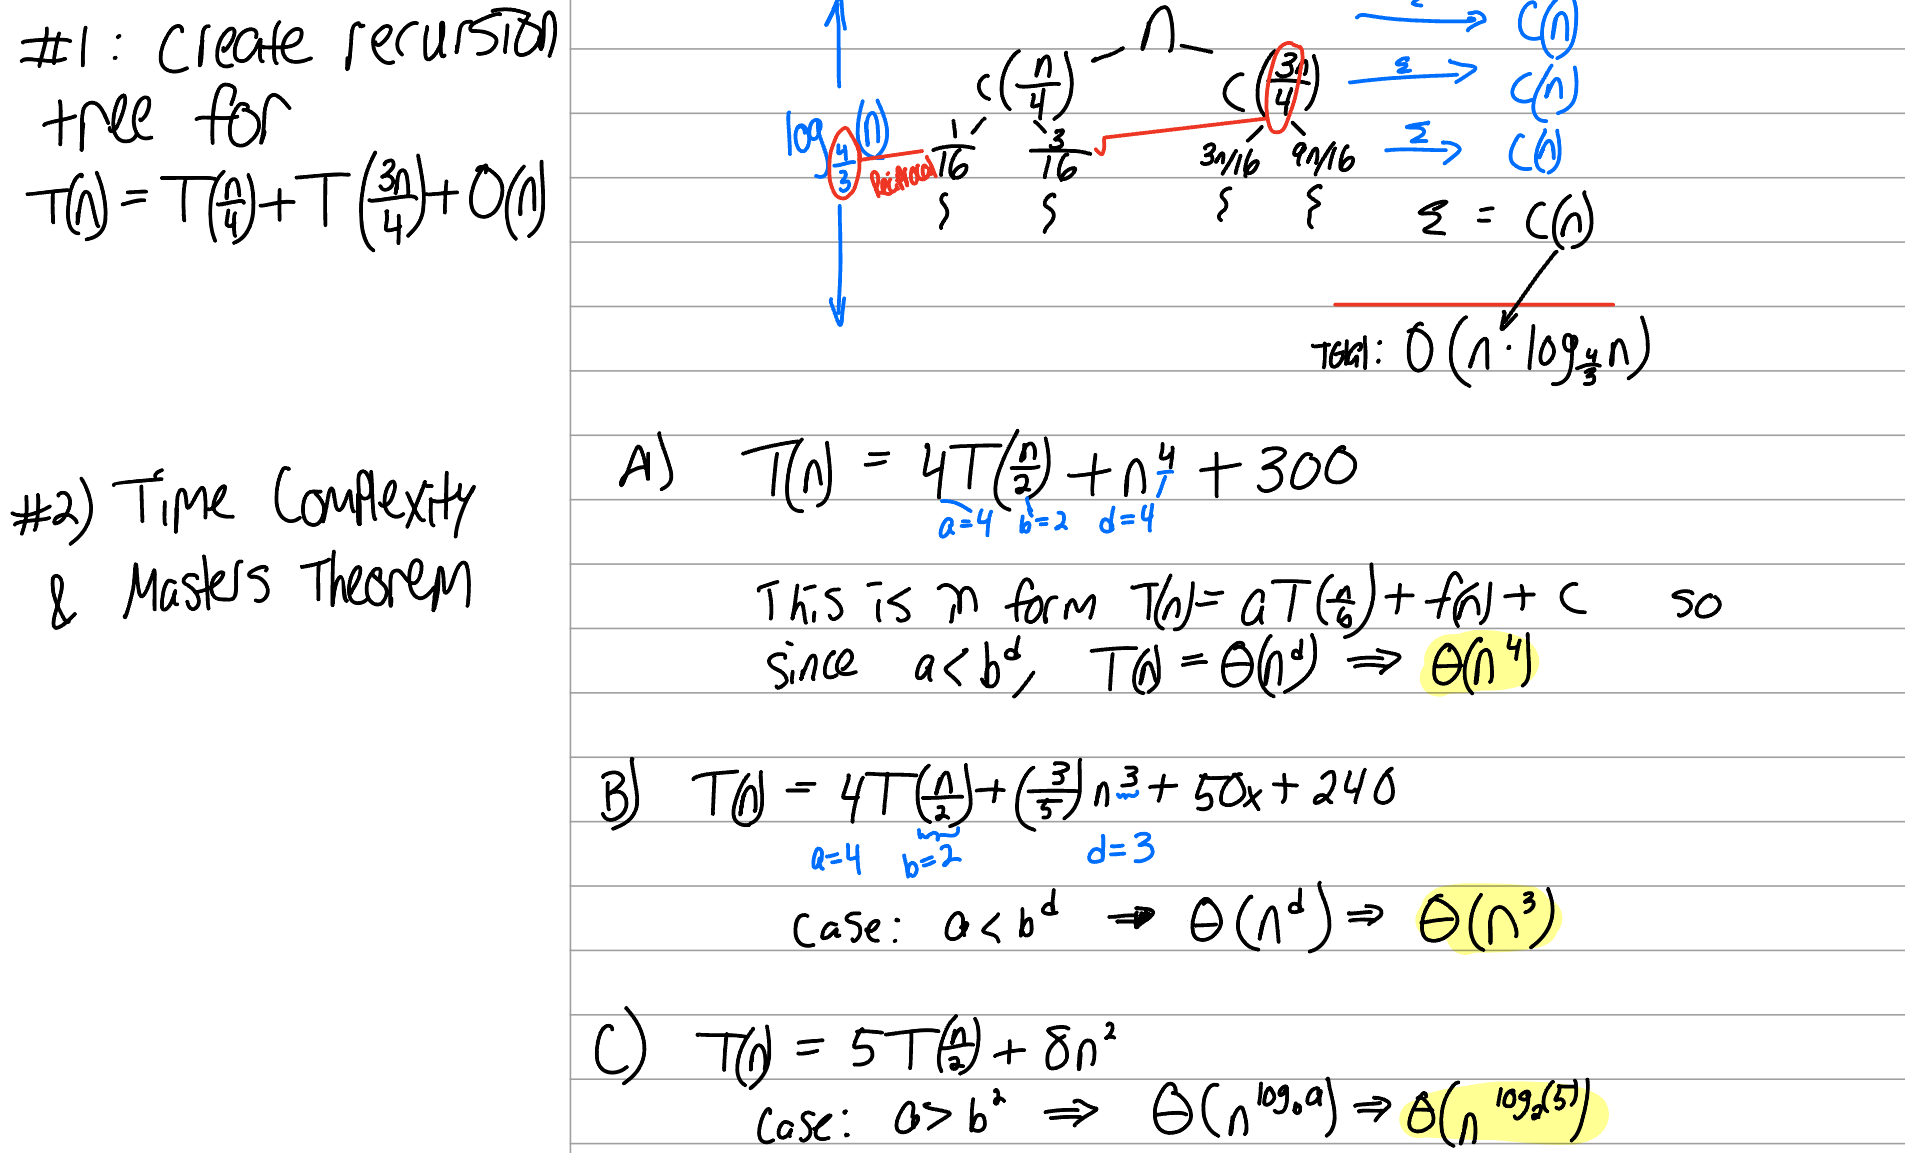 #1: Create recursion
tree for
T(n) = T(n/4) + T(3n/4) + O(n)
n
Σ → C(n)
C(n/4) C(3n/4) Σ → C(n)
log 4/3 (n)
Reciprocal
1/16 3/16 3n/16 9n/16 Σ → C(n)
Σ = C(n)
Total: O(n · log 4/3 n)
#2) Time Complexity
& Masters Theorem
A) T(n) = 4T(n/2) + n^4 + 300
a=4 b=2 d=4
This is in form T(n) = aT(n/b) + f(n) + c so
since a<b^d, T(n) = Θ(n^d) ⇒ Θ(n^4)
B) T(n) = 4T(n/2) + (3/5)n^3 + 50x + 240
a=4 b=2 d=3
Case: a<b^d ⇒ Θ(n^d) ⇒ Θ(n^3)
C) T(n) = 5T(n/2) + 8n^2
Case: a>b^2 ⇒ Θ(n^log_b a) ⇒ Θ(n^log_2(5))